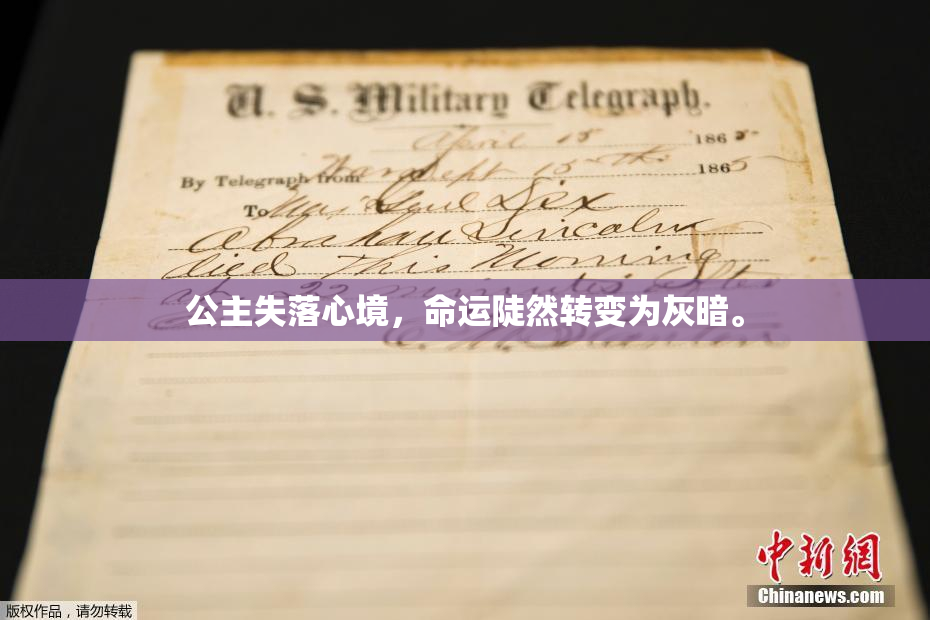 U. S. Military Telegraph.
April 15 1865
By Telegraph from War Dept 15th 1865
To Maj Genl Dix
Abraham Lincoln
died This Morning
at 22 minutes after
公主失落心境，命运陡然转变为灰暗。
E. M. Stanton
中新网
Chinanews.com
版权作品，请勿转载